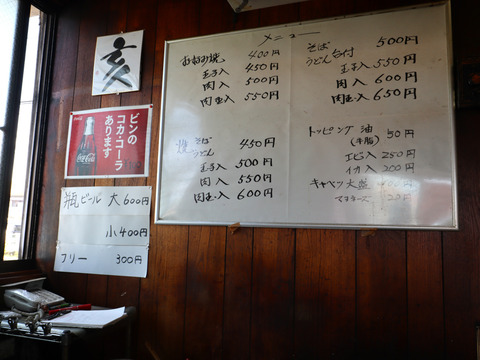 亥
ビンの
コカ・コーラ
あります
Coca-Cola
瓶ビール 大 600円
小 400円
フリー 300円
メニュー
お好み焼 400円
玉子入 450円
肉入 500円
肉玉入 550円
焼 そば
うどん 450円
玉子入 500円
肉入 550円
肉玉入 600円
そば
うどん 台付 500円
玉子入 550円
肉入 600円
肉玉入 650円
トッピング 油
(牛脂) 50円
エビ入 250円
イカ入 200円
キャベツ大盛
マヨネーズ 20円